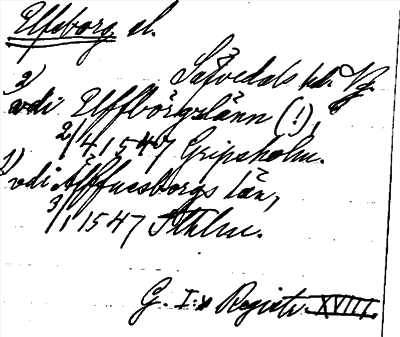 Elfsborg sl.
Sätvedals hd. Vg.
2) vdi Elffborgzlänn (!),
2/4 1547 Gripsholm.
1) vdi Älffuesborgs län,
3/1 1547 Sthlm.
G. I:s Registr. XVIII.